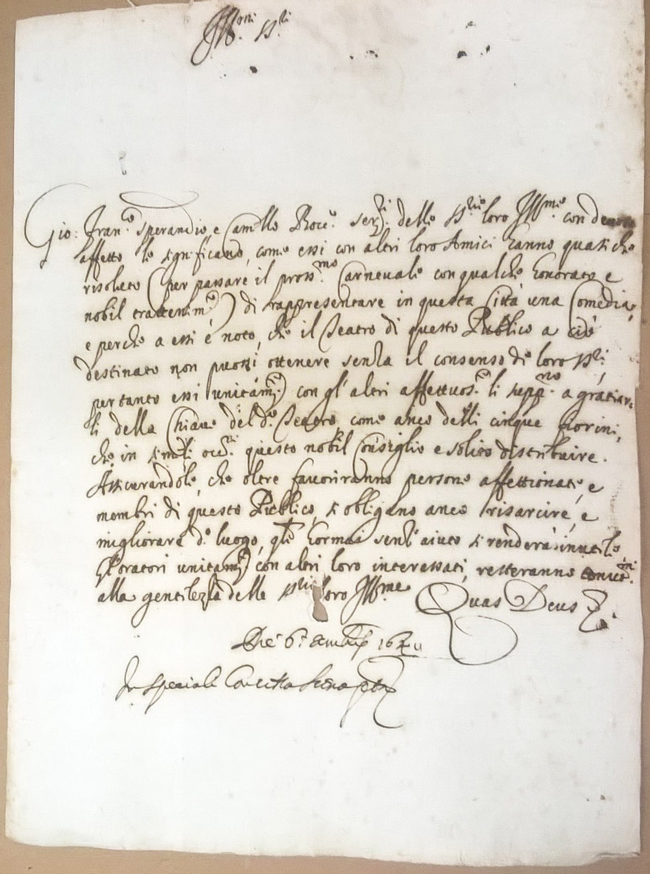 Ill.mi SS.ri
Gio: Fran.co Sperandio, e Camillo Roc.e ser.ri delle SS.rie loro Ill.me con devoto
affetto le significano, come essi con altri loro Amici hanno quasi che
risoluto (per passare il pross.mo Carnevale con qualche honorato e
nobil trattenim.to) di rappresentare in questa Città una Comedia,
e perche a essi è noto, che il Teatro di questo Publico a ciò
destinato non puossi ottenere senza il consenso de loro SS.ri,
per tanto essi unitam.te con gl'altri affettuos.te li supp.no a gratiar
li della Chiave del d.o Teatro, come anco delli cinque fiorini,
che in simili occ.ni questo nobil Consiglio è solito distribuire.
Assicurandole, che oltre favoriranno persone affettionate, e
membri di questo Publico, si obligano anco risarcire, e
migliorare d.o luogo, q.le hormai senz'aiuto si renderà inutile
Gl'oratori unitam.te con altri loro interessati, resteranno
alla gentilezza delle SS.rie loro Ill.me Quas Deus
Die 6
In speciali